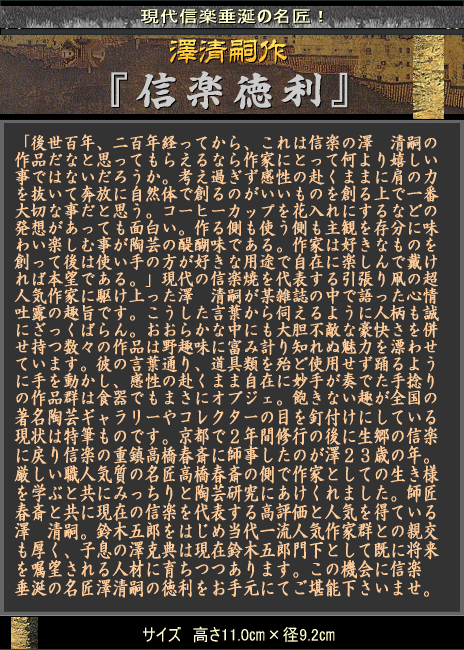 現代信楽垂涎の名匠！
澤清嗣作
『信楽徳利』
「後世百年、二百年経ってから、これは信楽の澤　清嗣の
作品だなと思ってもらえるなら作家にとって何より嬉しい
事ではないだろうか。考え過ぎず感性の赴くままに肩の力
を抜いて奔放に自然体で創るのがいいものを創る上で一番
大切な事だと思う。コーヒーカップを花入れにするなどの
発想があっても面白い。作る側も使う側も主観を存分に味
わい楽しむ事が陶芸の醍醐味である。作家は好きなものを
創って後は使い手の方が好きな用途で自在に楽しんで戴け
れば本望である。」現代の信楽焼を代表する引張り凧の超
人気作家に駆け上った澤　清嗣が某雑誌の中で語った心情
吐露の趣旨です。こうした言葉から伺えるように人柄も誠
にざっくばらん。おおらかな中にも大胆不敵な豪快さを併
せ持つ数々の作品は野趣味に富み計り知れぬ魅力を漂わせ
ています。彼の言葉通り、道具類を殆ど使用せず踊るよう
に手を動かし、感性の赴くまま自在に妙手が奏でた手捻り
の作品群は食器でもまさにオブジェ。飽きない趣が全国の
著名陶芸ギャラリーやコレクターの目を釘付けにしている
現状は特筆ものです。京都で２年間修行の後に生郷の信楽
に戻り信楽の重鎮高橋春斎に師事したのが澤２３歳の年。
厳しい職人気質の名匠高橋春斎の側で作家としての生き様
を学ぶと共にみっちりと陶芸研究にあけくれました。師匠
春斎と共に現在の信楽を代表する高評価と人気を得ている
澤　清嗣。鈴木五郎をはじめ当代一流人気作家群との親交
も厚く、子息の澤克典は現在鈴木五郎門下として既に将来
を嘱望される人材に育ちつつあります。この機会に信楽
垂涎の名匠澤清嗣の徳利をお手元にてご堪能下さいませ。
サイズ　高さ11.0cm×径9.2cm